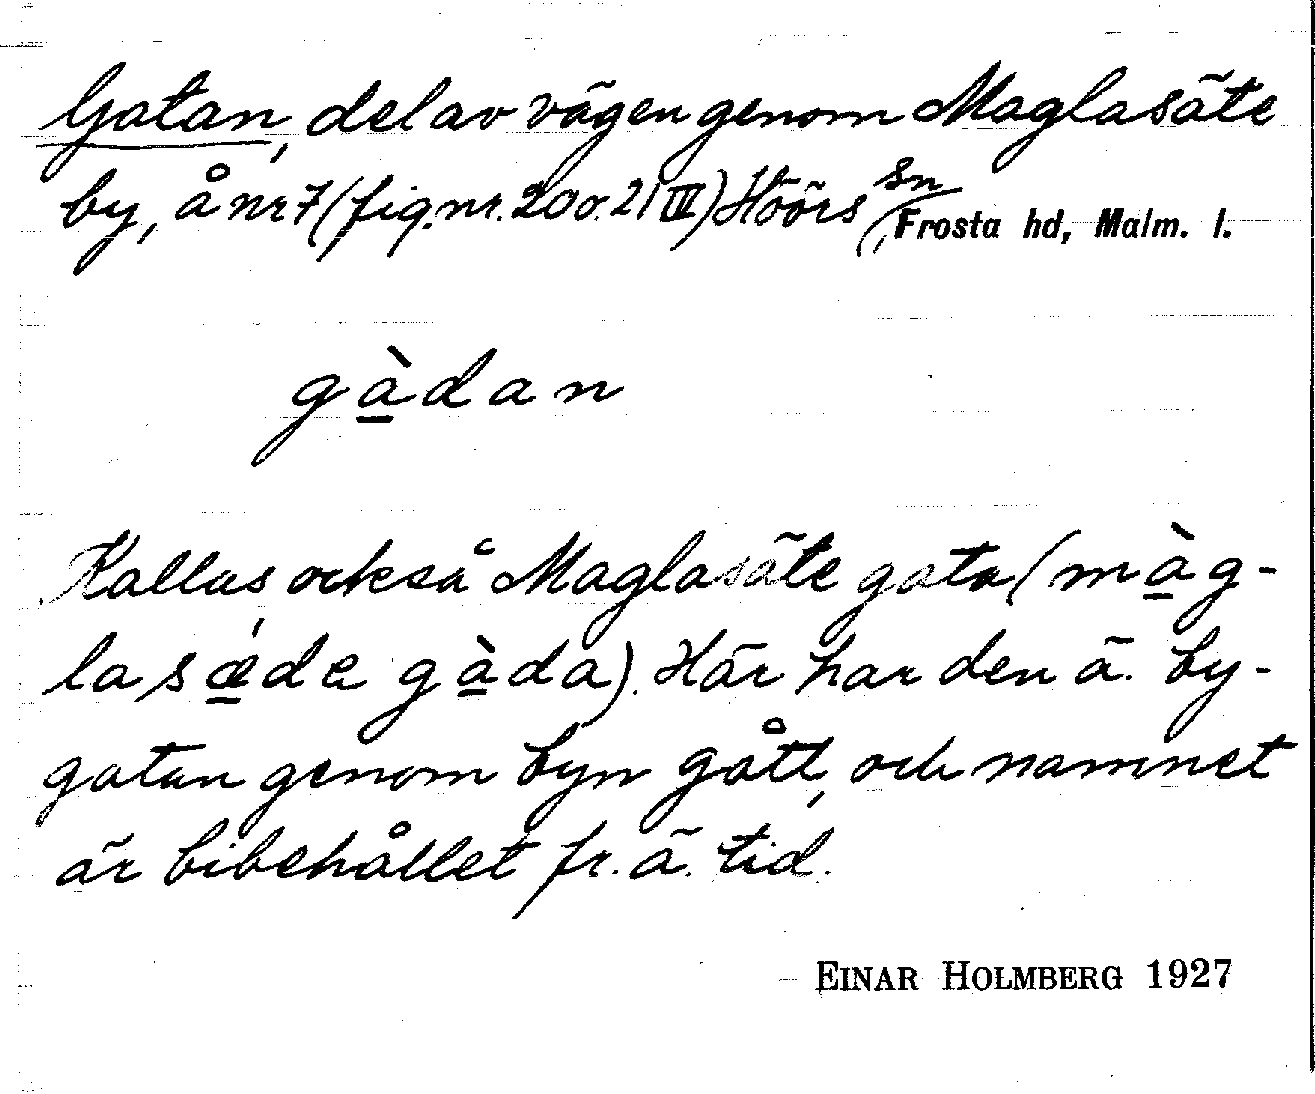 Gatan, del av vägen genom Maglasäte
by, å nr 7 (fig. nr. 20 o. 21 III) Höörs sn, Frosta hd, Malm. l.
gà̱dan
Kallas också Maglasäte gata (mà̱g-
lasǽ̱de gà̱da). Här har den ä. by-
gatan genom byn gått, och namnet
är bibehållet fr. ä. tid.
EINAR HOLMBERG 1927